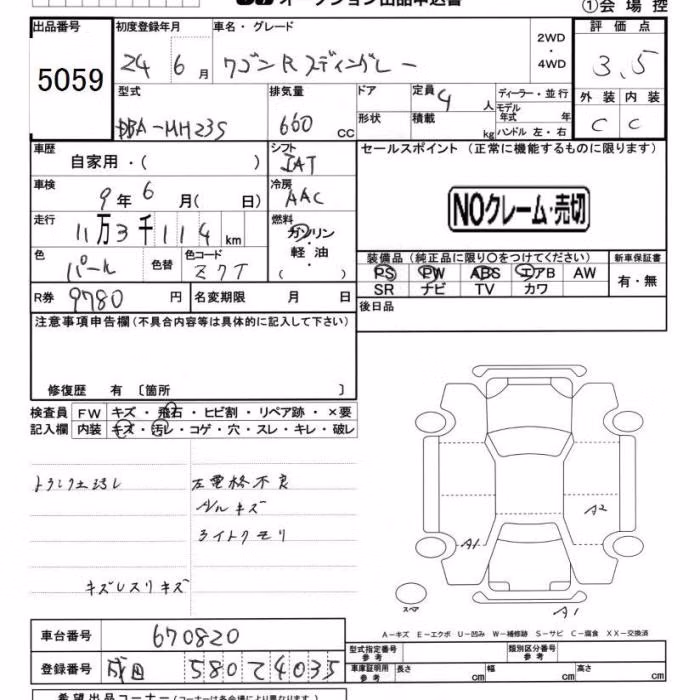 オークション出品申込書
①会場控
出品番号 5059
初度登録年月 24 6月
車名・グレード ワゴンR スティングレー
2WD・4WD
評価点 3.5
型式 DBA-MH23S
排気量 660 cc
ドア
形状
定員 4人
積載 kg
ディーラー・並行
モデル年式 年
ハンドル 左・右
外装 内装
C C
車歴 自家用・( )
シフト IAT
セールスポイント (正常に機能するものに限ります)
車検 9年6月( 日)
冷房 AAC
NOクレーム・売切
走行 11万3千114km
燃料 ガソリン・軽油・( )
色 パール
色替
色コード Z7T
装備品(純正品に限り○をつけてください)
新車保証書
PS PW ABS エアB AW
SR ナビ TV カワ
有・無
R券 9780円
名変期限 月 日
後日品
注意事項申告欄(不具合内容等は具体的に記入して下さい)
修復歴 有〔箇所 〕
検査員 FW キズ・飛石・ヒビ割・リペア跡・×要
記入欄 内装 キズ・汚レ・コゲ・穴・スレ・キレ・破レ
トランク土汚レ 左電格不良
ハンドルキズ
ライトクモリ
キズ Uスリキズ
A2
A1
スペア
A1
A-キズ E-エクボ U-凹み W-補修跡 S-サビ C-腐食 XX-交換済
車台番号 670820
型式指定番号 参考
類別区分番号 参考
登録番号 成田 580 て 4035
車庫証明用 参考 長さ cm 幅 cm 高さ cm
希望出品コーナー(コーナーは各会場により異なります)